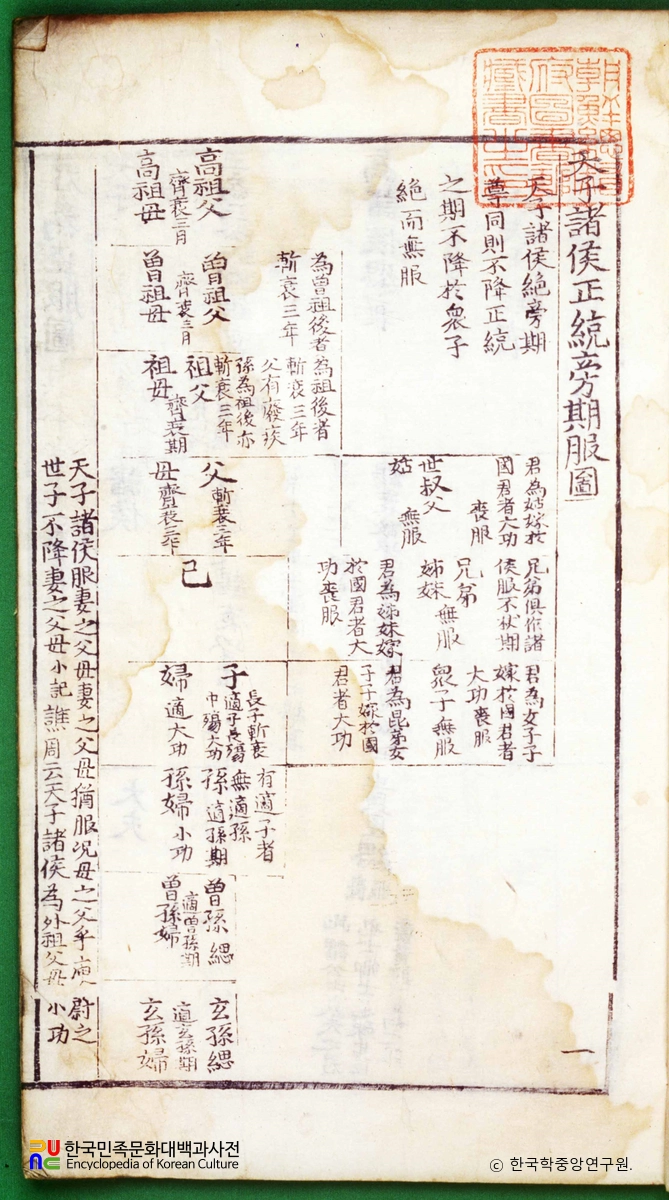 天子諸侯正統旁期服圖
天子諸侯絶旁期
尊同則不降正統
之期不降於衆子
絶而無服
高祖父
齊衰三月
高祖母
曾祖父
齊衰三月
曾祖母
為曾祖後者
斬衰三年
為祖後者
斬衰三年
父有廢疾
孫為祖後亦
斬衰三年
祖父
齊衰期
祖母
君為姑嫁於
國君者大功
喪服
世叔父
姑 無服
父 斬衰三年
母 齊衰三年
兄弟俱作諸
侯服不杖期
兄弟
姊妹 無服
君為姊妹嫁
於國君者大
功喪服
己
君為女子子
嫁於國君者
大功喪服
衆子 無服
君為昆弟女
子子嫁於國
君者大功
長子斬衰
子 適子長殤
中殤大功
婦 適大功
有適子者
無適孫
孫 適孫期
孫婦 小功
曾孫 緦
適曾孫期
曾孫婦
玄孫緦
適玄孫期
玄孫婦
天子諸侯服妻之父母妻之父母猶服况母之父乎 蔚之
世子不降妻之父母小記譙周云天子諸侯為外祖父母小功
一
朝鮮總
府圖書
藏書之
한국민족문화대백과사전
Encyclopedia of Korean Culture
ⓒ 한국학중앙연구원.